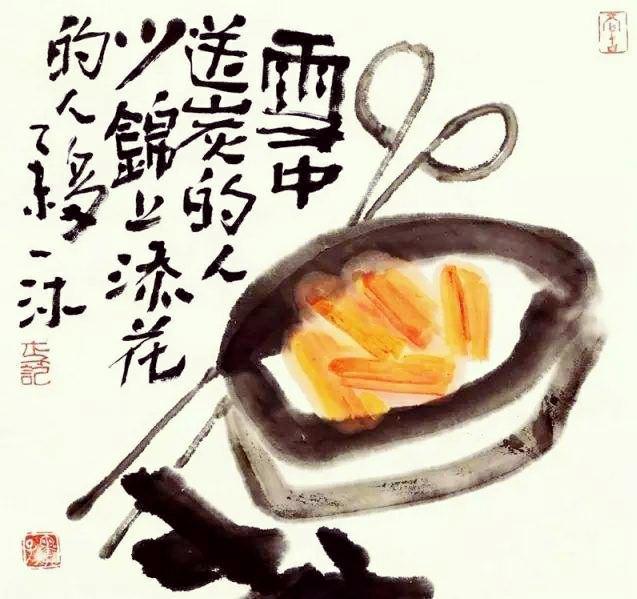 雪中
送炭的人
少錦上添花
的人
乙未一沐